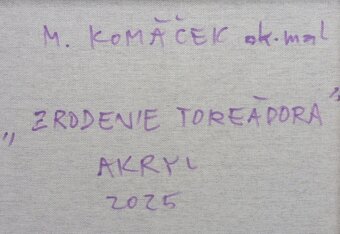 M. KOMÁČEK ak.mal
„ZRODENIE TOREÁDORA"
AKRYL
2025